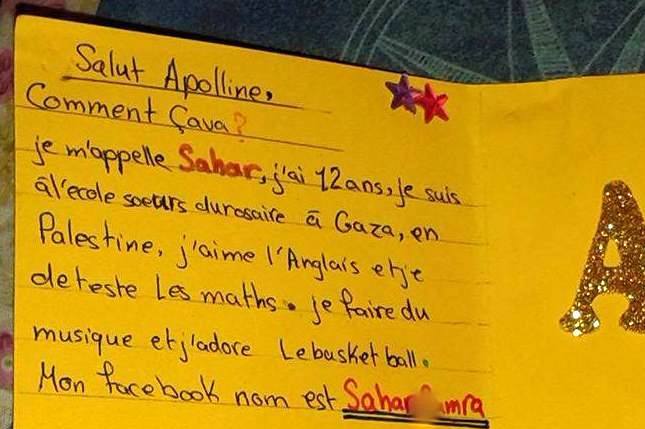 Salut Apolline,
Comment Çava?
je m'appelle Sahar, j'ai 12ans, je suis
àl'ecole soeurs durosaire à Gaza, en
Palestine, j'aime l'Anglais etje
deteste Les maths. je faire du
musique etj'adore Lebasket ball.
Mon facebook nom est Sahar
A